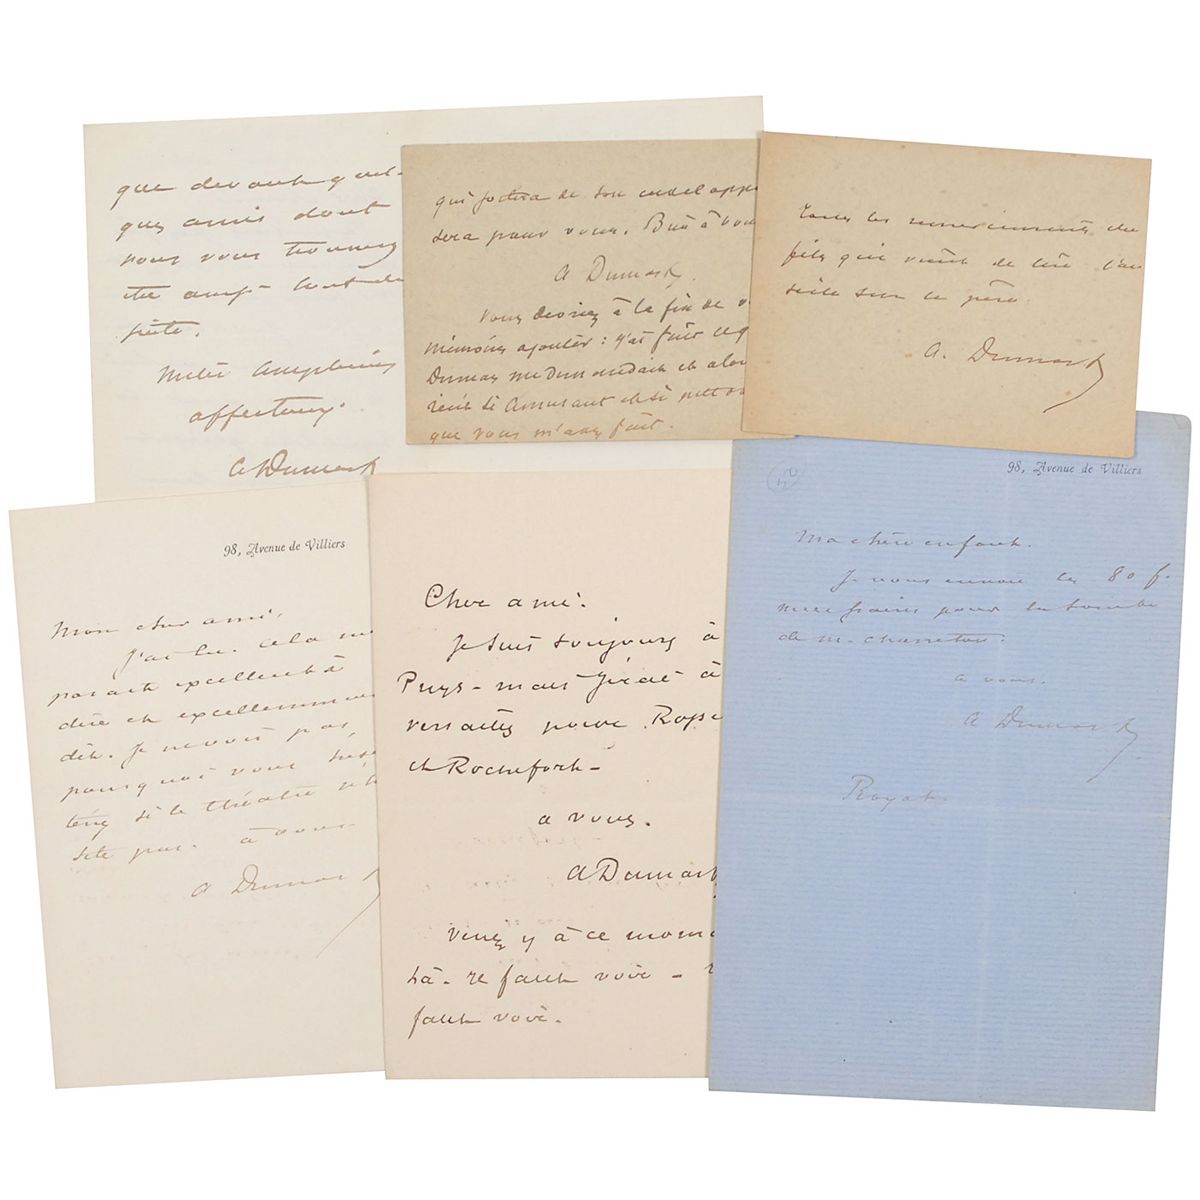 que devant quel-
ques amis dont
nous vous trouvons
être aussi
Mille
affectueux.
A Dumas f
qui
sera pour vous. Bien à vous
A Dumas f.
Vous devriez à la fin de
mémoires ajouter : j'ai fait ce q
Dumas me demandait et
récit si amusant et si
que vous m'avez fait.
Tous les remerciements du
fils qui vient de lire l'ar
ticle sur le père.
A. Dumas f
98, Avenue de Villiers
Mon cher ami,
J'ai lu. Cela me
parait excellent à
dire et excellemment
dit. Je ne vois pas
pourquoi vous hési
teriez si le théâtre n'hé
site pas. à vous
A Dumas f
Cher ami.
Je suis toujours à
Puys - mais j'irai à
Versailles pour
et Rochefort -
a vous.
A Dumas f
Venez y à ce momen
là. Il faut voir -
faut voir.
98, Avenue de Villiers
Ma chère enfant.
Je vous envoie les 80 f.
pour la tombe
de M.
a vous.
A Dumas f
Royat